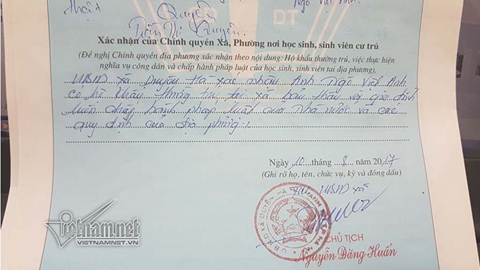 Quyền
DT
Xác nhận của Chính quyền Xã, Phường nơi học sinh, sinh viên cư trú
(Đề nghị Chính quyền địa phương xác nhận theo nội dung: Hộ khẩu thường trú, việc thực hiện
nghĩa vụ công dân và chấp hành pháp luật của học sinh, sinh viên tại địa phương.)
UBND xã Duyên Hà xác nhận Anh Ngô Việt Anh
có hộ khẩu thường trú tại xã bản thân và gia đình
luôn chấp hành pháp luật của Nhà nước và các
quy định của địa phương.
Ngày 10 tháng 8 năm 2017
(Ghi rõ họ, tên, chức vụ, ký và đóng dấu)
UBND xã
CHỦ TỊCH
Nguyễn Đăng Huấn
Vietnamnet
VIETNAMNET.VN